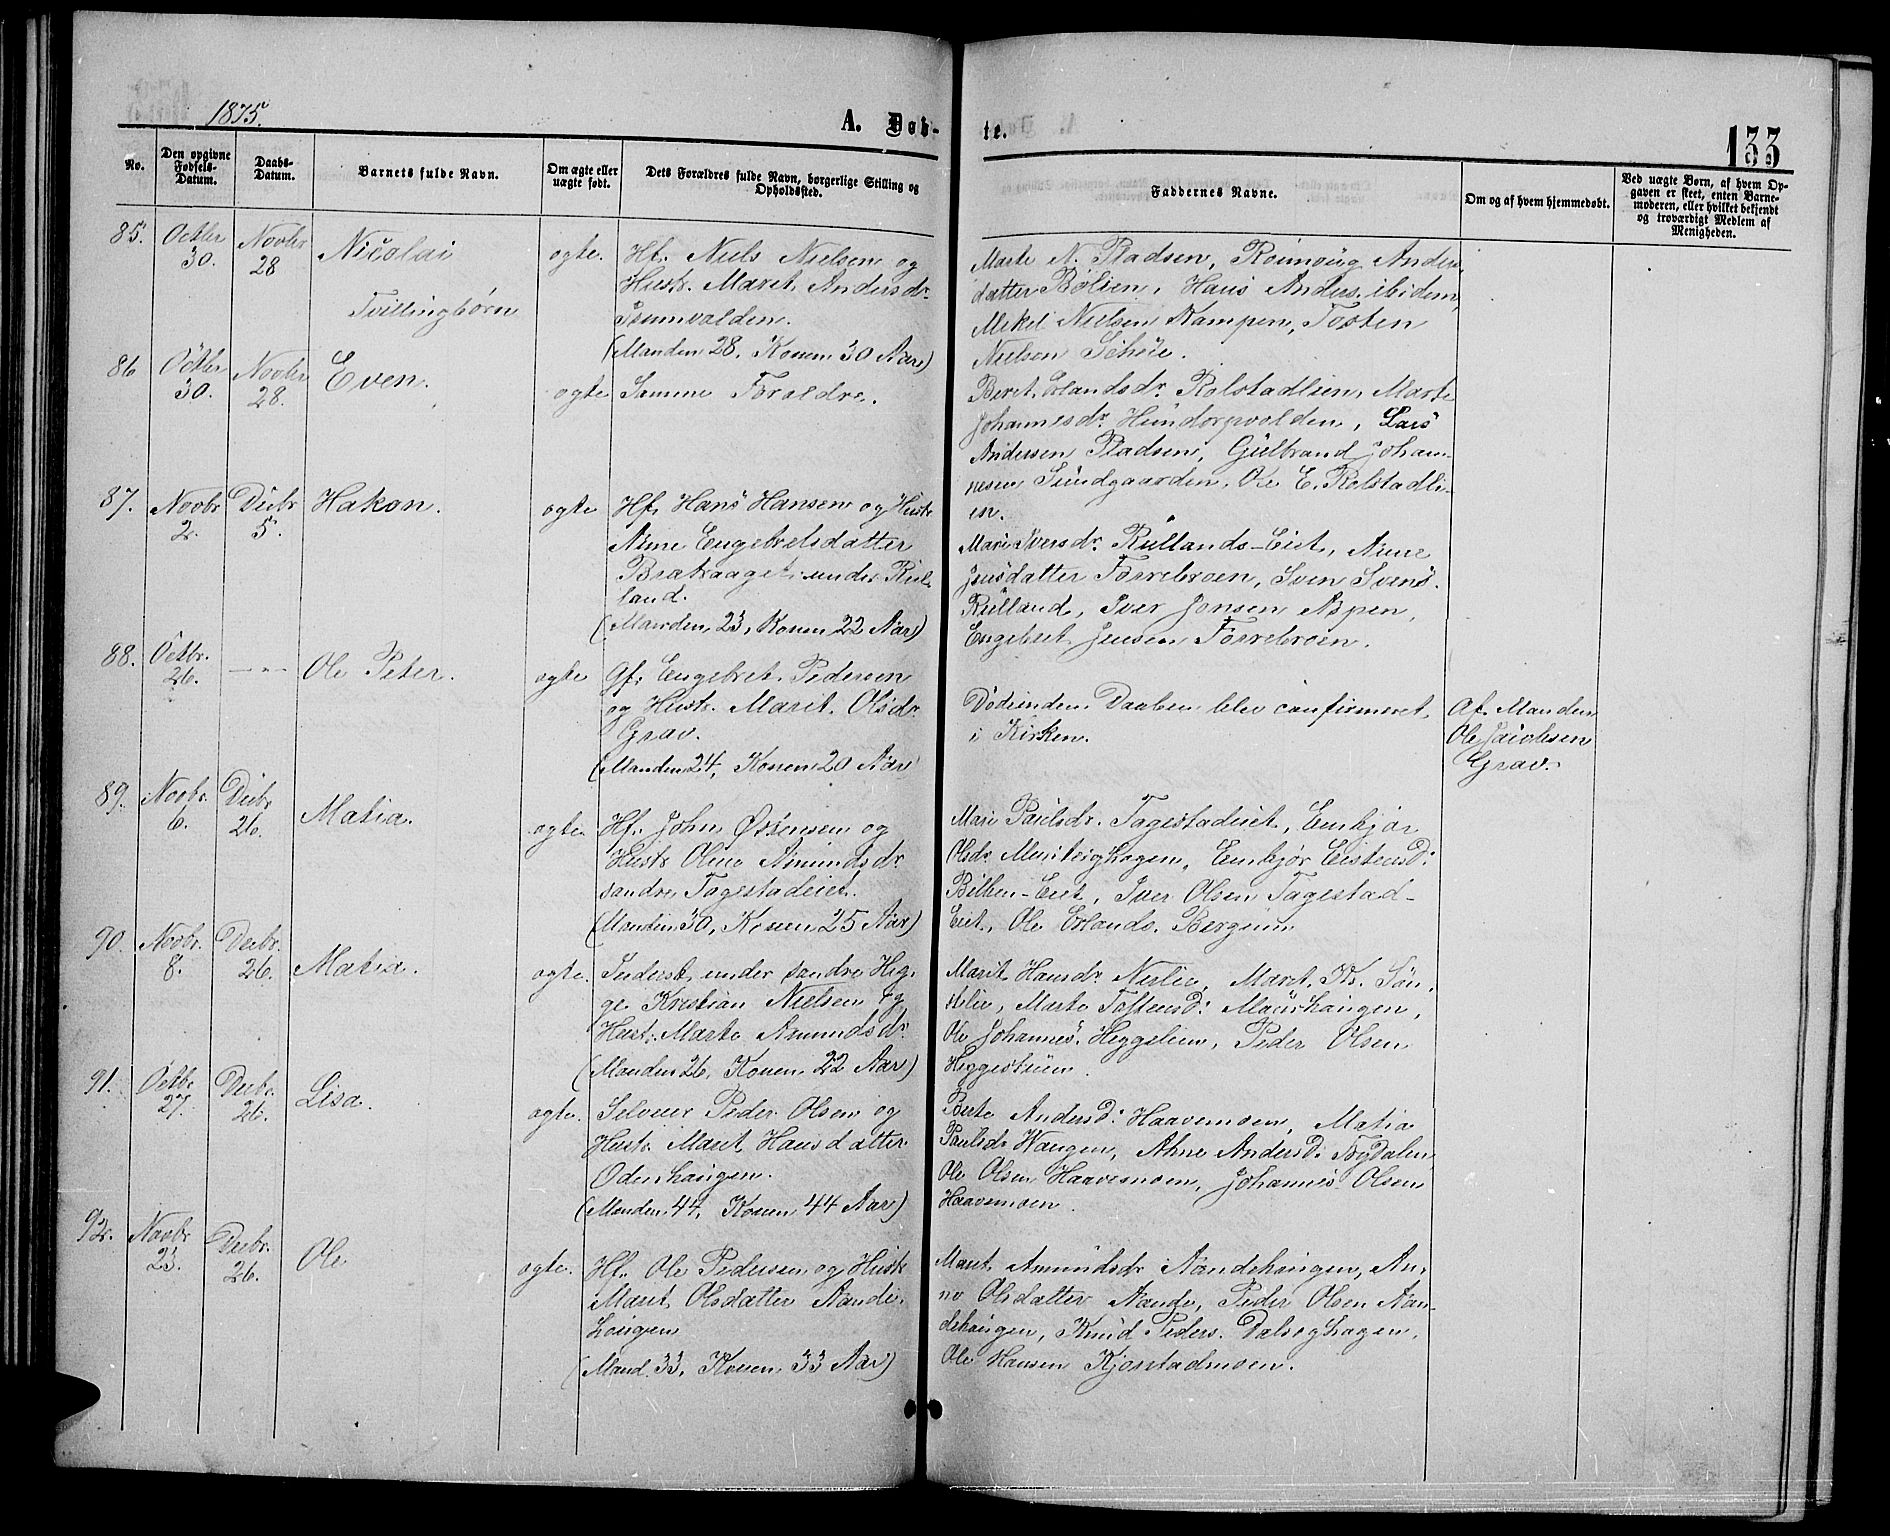 1875.
A. Døb-
te.
133
No.
Den opgivne Fødsels-Datum.
Daabs-Datum.
Barnets fulde Navn.
Om ægte eller uægte født.
Dets Forældres fulde Navn, borgerlige Stilling og Opholdssted.
Faddernes Navne.
Om og af hvem hjemmedøbt.
Ved uægte Børn, af hvem Opgaven er skeet, enten Barnemoderen, eller hvilket bekjendt og troværdigt Medlem af Menigheden.
85. Octbr 30. Novbr 28 Nicolai
Tvillingbørn
ægte. Hf. Niels Nielsen og
Hustr. Marit Andersdr.
(Manden 28, Konen 30 Aar)
Marte N. Pladsen, Rønnoug Anders
datter Bølien, Hans Anders. ibidem,
Mikel Nielsen Kampen, Tosten
Nielsen
86 Octbr 30. Novbr 28. Even.
ægte Samme Forældre.
Beret Erlandsdr. Rolstadlien, Marte
Johannesdr. Hundorpvolden, Lars
Andersen Pladsen, Gulbrand Johan-
nesen Sundgaarden, Ole E. Rolstadli-
en.
87. Novbr 2. Decbr 5. Hakon.
ægte Hf. Hans Hansen og Hustr
Anne Engebretsdatter
under Rul-
land.
(Manden 23, Konen 22 Aar)
Mari Iversdr. Rullands-Eiet, Anne
Jensdatter Forrebroen, Sven Svens.
Rulland, Iver Jonsen Aspen,
Engebret Jensen Forrebroen.
88. Octbr. 26. —"— Ole Peter.
ægte Gf. Engebret Pedersen
og Hustr. Marit Olsdr.
Grav.
(Manden 24, Konen 20 Aar
Død inden Daaben blev confirmeret
i Kirken.
Af Manden
Ole Jacobsen
Grav.
89. Novbr. 6. Decbr 26. Matia.
ægte. Hf. John Østensen og
Hustr Oline Amundsdr.
søndre Tagestadeiet.
(Manden 30, Konen 25 Aar)
Mari Paulsdr. Tagestadeiet, Embjør
Olsdr. , Embjør Eistensd:
-Eiet, Iver Olsen Tagestad-
Eiet, Ole Erlands. Bergum
90. Novbr. 8. Decbr. 26. Matia.
ægte. Inderst under søndre Hig-
ge Kristian Nielsen og
Hustr. Marte Amundsdr
(Manden 26, Konen 22 Aar)
Marit Hansdr Nerlie, Maret Kr. Søn-
stelie, Marte Toftensd: Maurhaugen,
Ole Johannes. Heggelien, Peder Olsen
91. Octbr 27. Decbr. 26. Lisa.
ægte. Selveier Peder Olsen og
Hustr Marit Hansdatter
Odenhaugen.
(Manden 44, Konen 44 Aar)
Berte Andersd: Haavemoen, Matia
Paulsdr Haugen, Ahne Andersd: Bydalen,
Ole Olsen Haavemoen, Johannes Olsen
Haavemoen.
92. Novbr 23. Decbr. 26. Ole
ægte. Hf. Ole Pedersen og Hustr
Marit Olsdatter Aande-
haugen
(Mand 33, Konen 33 Aar)
Marit Amundsdr Aandehaugen, An-
ne Olsdatter Aande, Peder Olsen Aan-
dehaugen, Knud Peders. Dalseghagen,
Ole Hansen Kjørstadmoen.